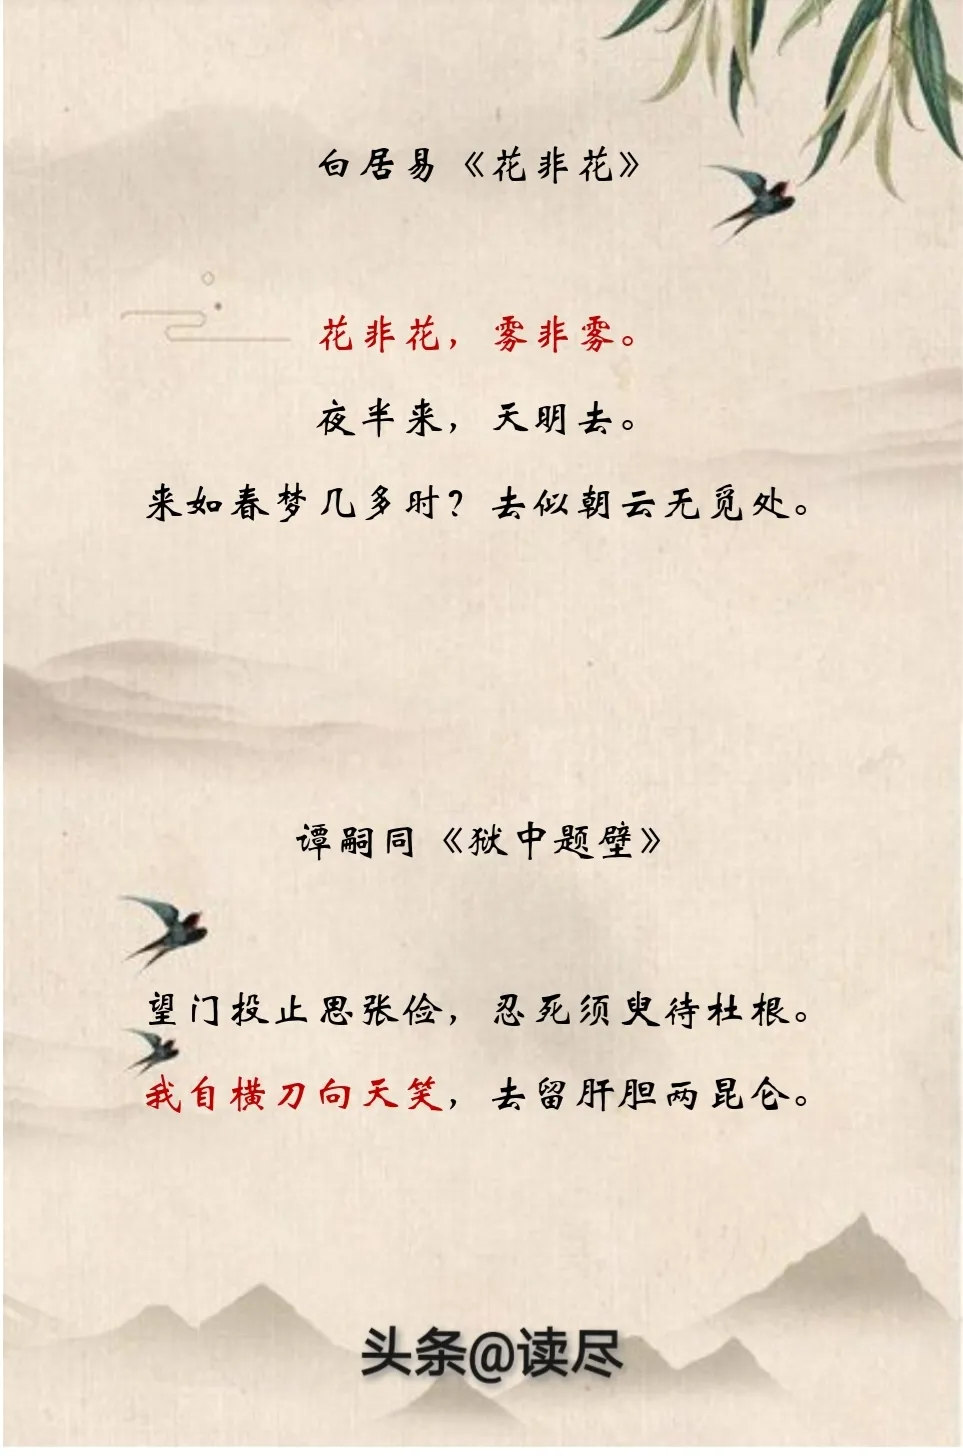 白居易《花非花》
花非花，雾非雾。
夜半来，天明去。
来如春梦几多时？去似朝云无觅处。
谭嗣同《狱中题壁》
望门投止思张俭，忍死须臾待杜根。
我自横刀向天笑，去留肝胆两昆仑。
头条@读尽